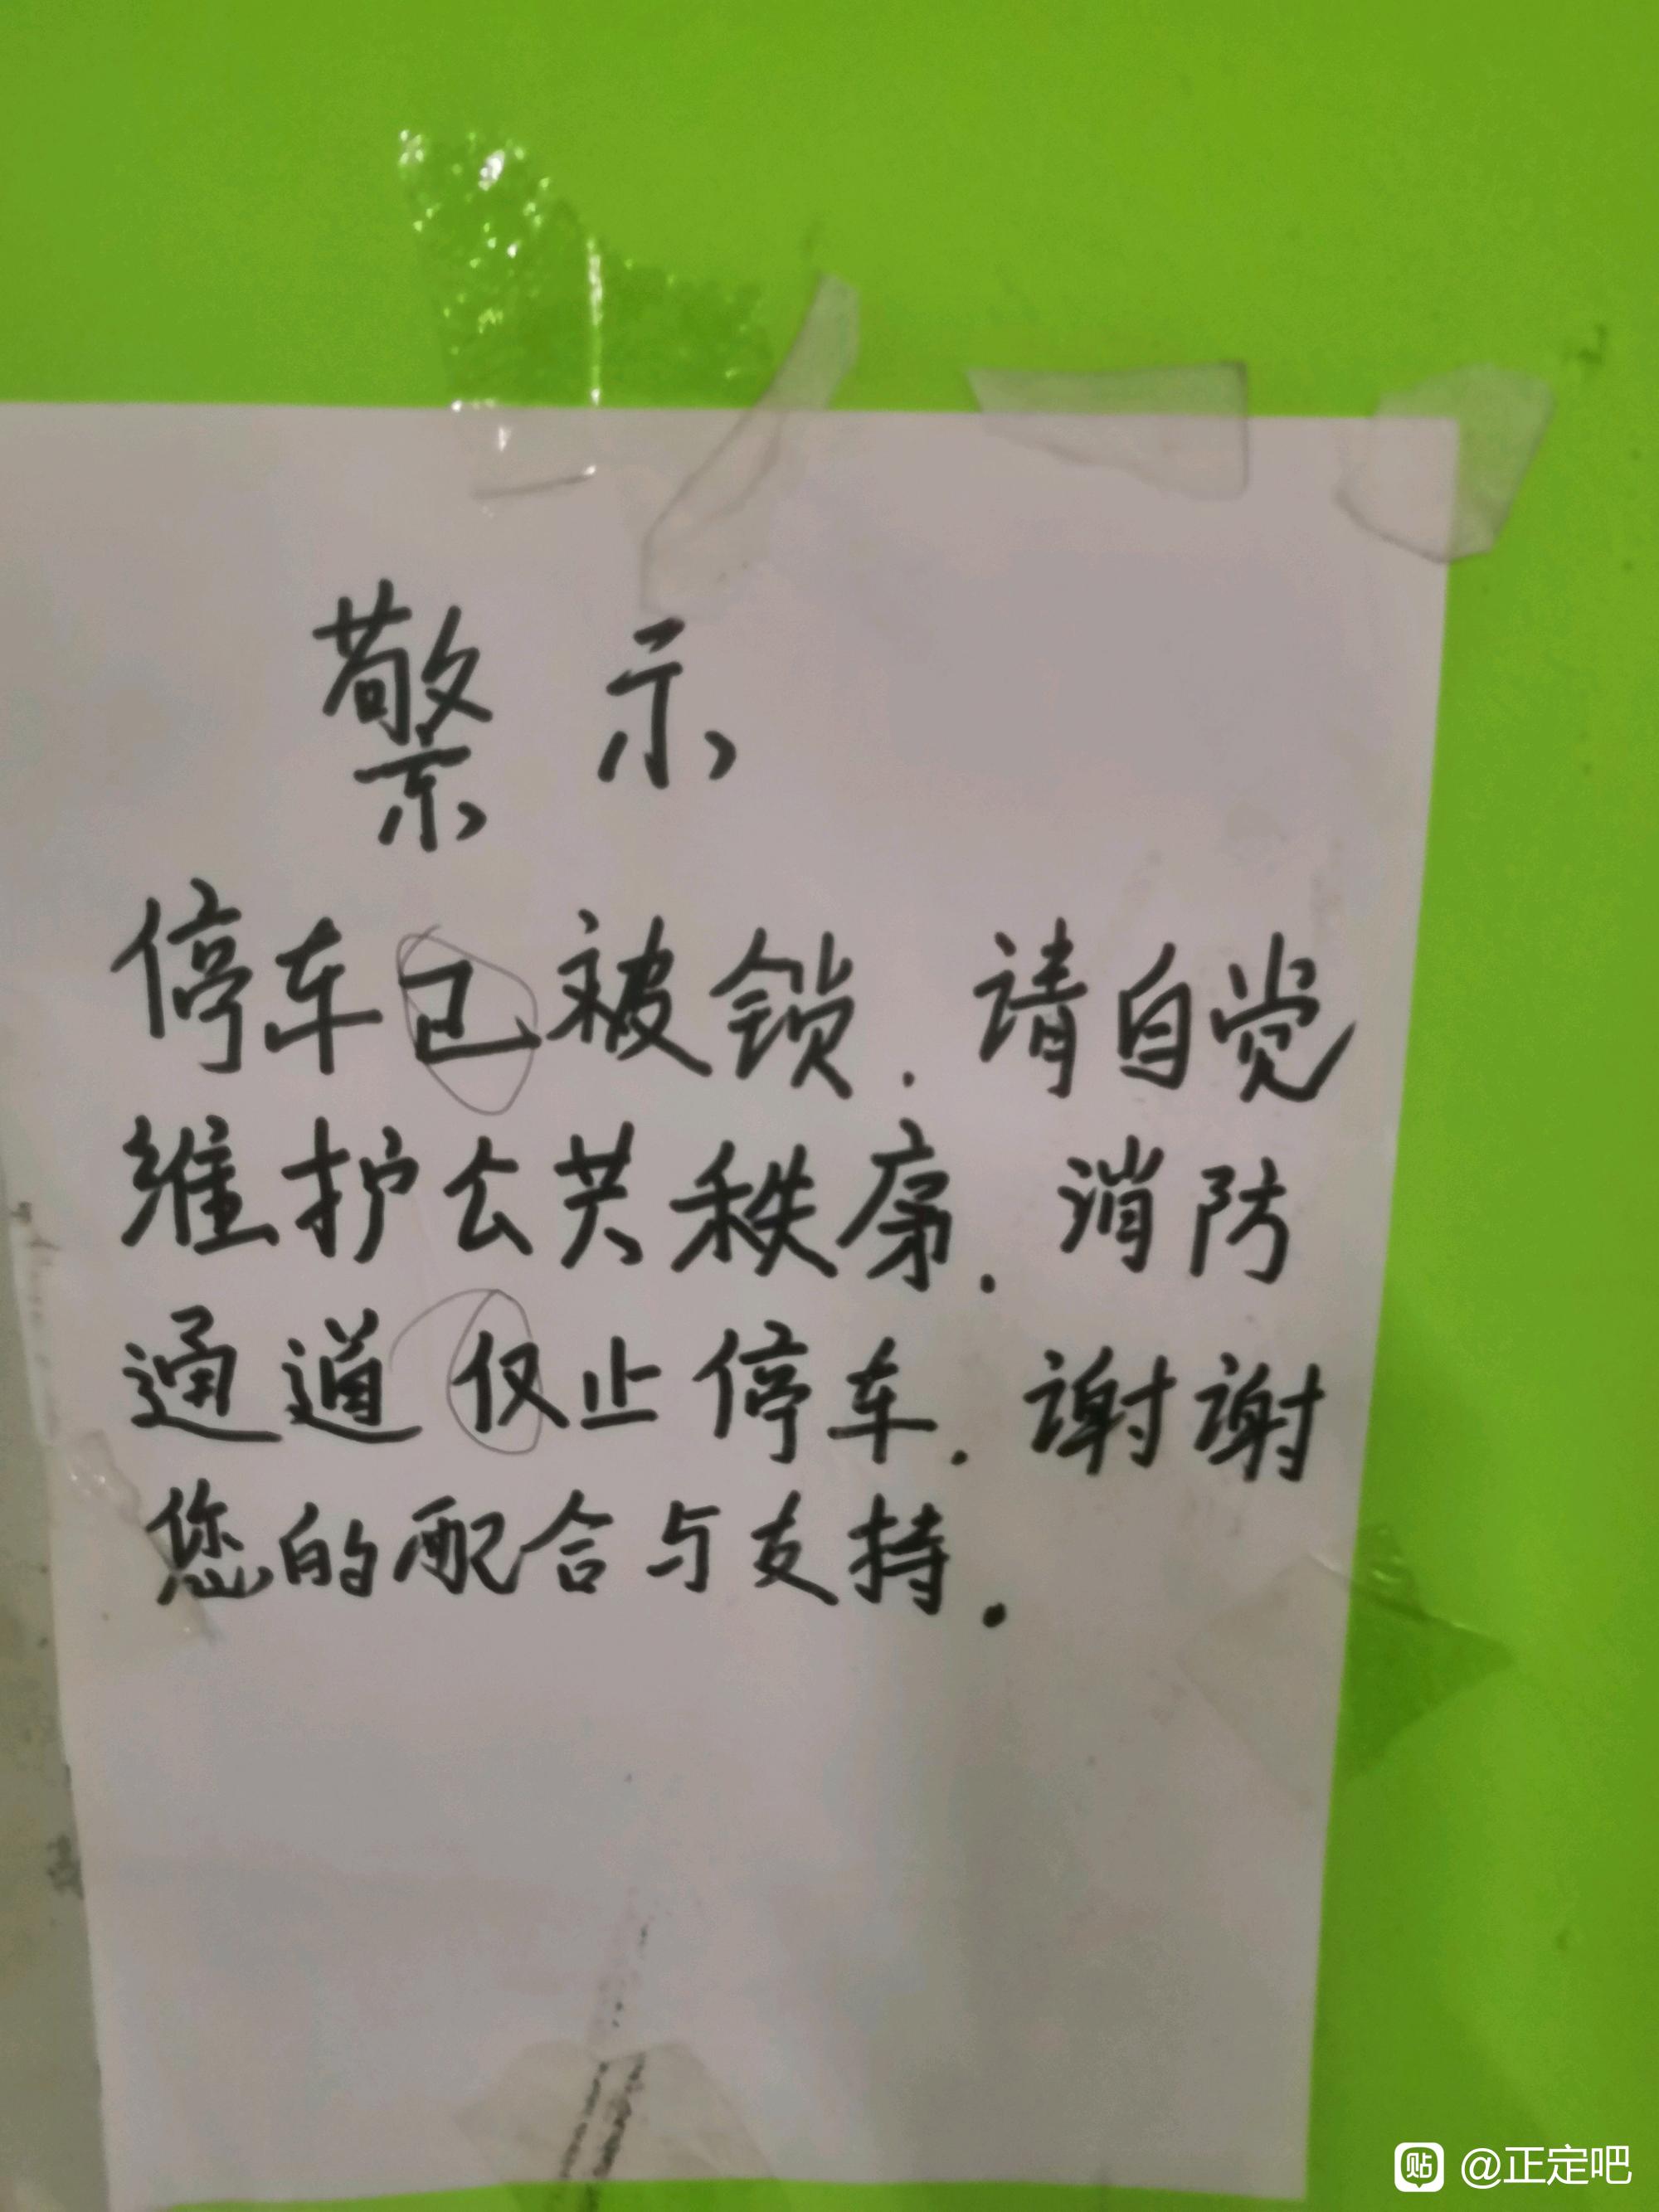 警示
停车已被锁.请自觉
维护公共秩序.消防
通道仅止停车.谢谢
您的配合与支持.
贴 @正定吧